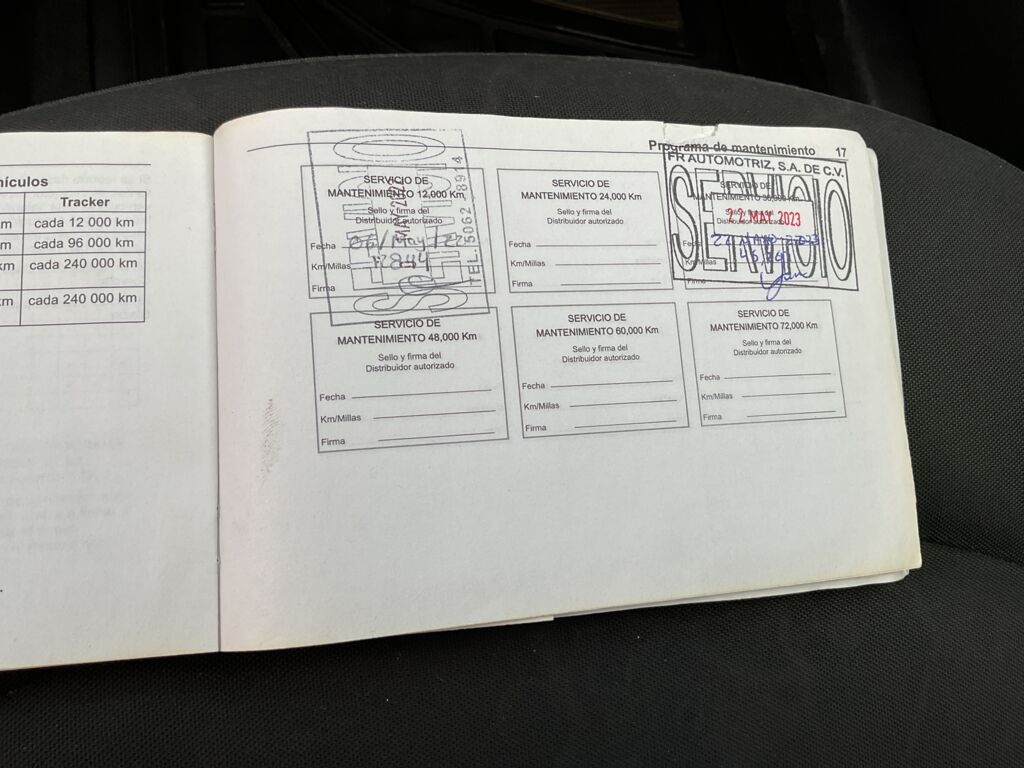 hículos
Tracker
m cada 12 000 km
m cada 96 000 km
km cada 240 000 km
km cada 240 000 km
Programa de mantenimiento 17
SERVICIO DE
MANTENIMIENTO 12,000 Km
Sello y firma del
Distribuidor autorizado
MAY 202
Fecha
Km/Millas 12844
Firma
TEL. 5062 8914
SERVICIO DE
MANTENIMIENTO 24,000 Km
Sello y firma del
Distribuidor autorizado
Fecha
Km/Millas
Firma
FR AUTOMOTRIZ, S.A. DE C.V.
SERVICIO
SERVICIO DE
MANTENIMIENTO
Sello y firma del
Distribuidor autorizado
22 MAY 2023
Fecha
Km/Millas
Firma
SERVICIO DE
MANTENIMIENTO 48,000 Km
Sello y firma del
Distribuidor autorizado
Fecha
Km/Millas
Firma
SERVICIO DE
MANTENIMIENTO 60,000 Km
Sello y firma del
Distribuidor autorizado
Fecha
Km/Millas
Firma
SERVICIO DE
MANTENIMIENTO 72,000 Km
Sello y firma del
Distribuidor autorizado
Fecha
Km/Millas
Firma